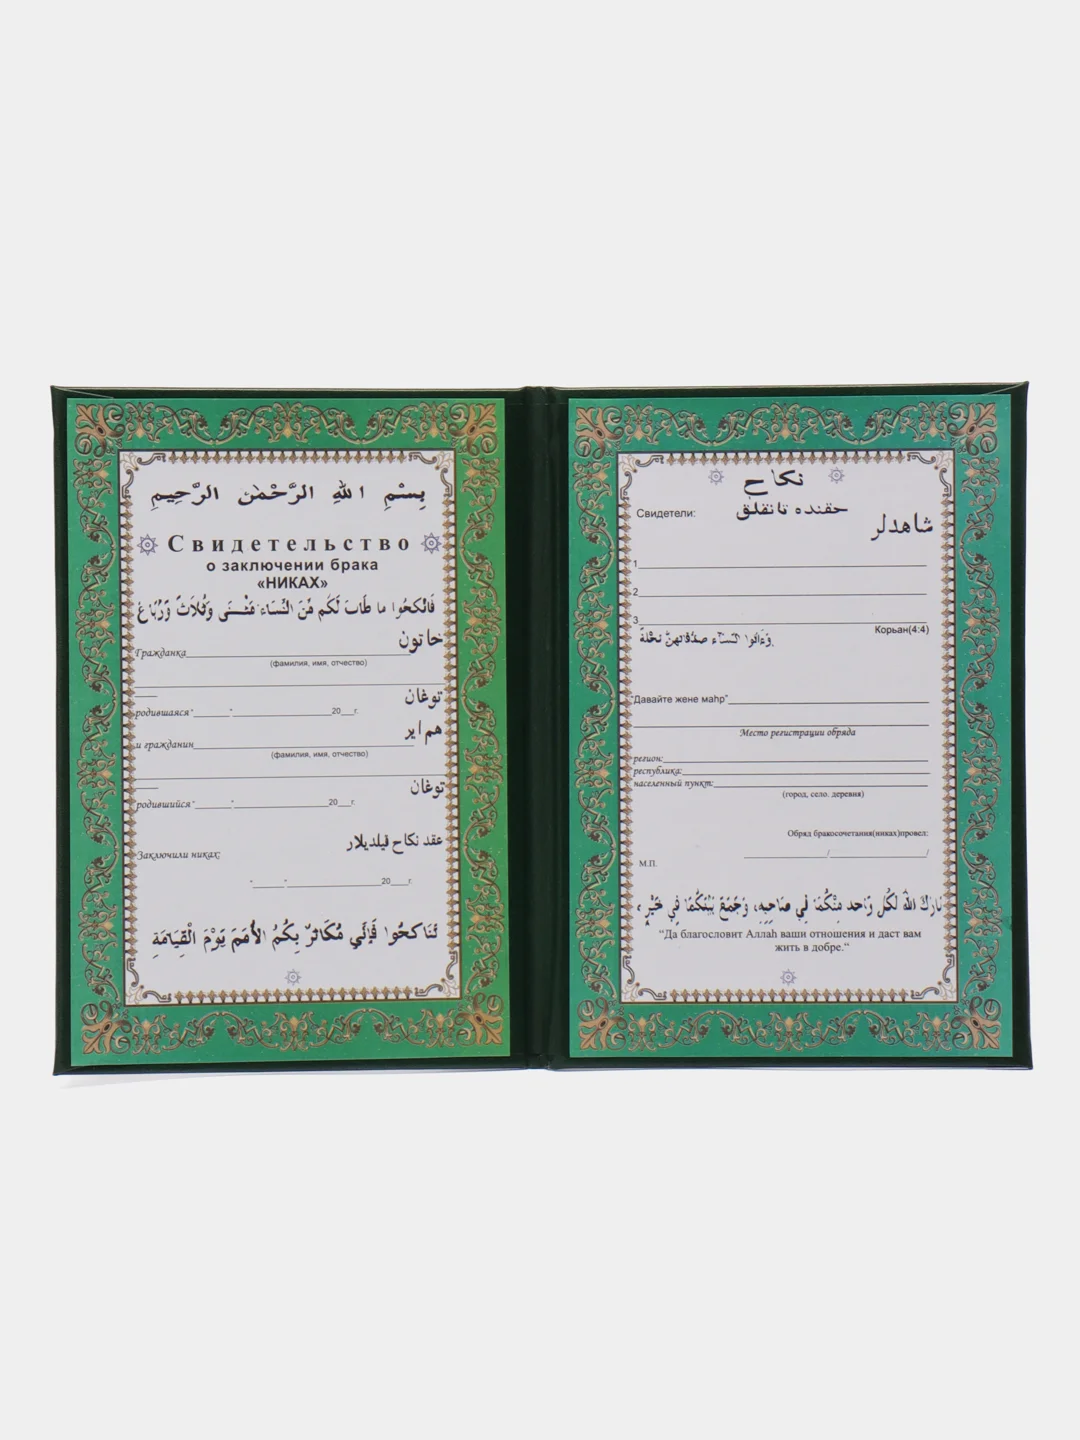 بِسْمِ اللهِ الرَّحْمٰنِ الرَّحِيمِ
Свидетельство
о заключении брака
«НИКАХ»
فَانْكَحُوا ما طَابَ لَكُم مِّنَ النِّسَاءِ مَثْنَى وَثُلَاثَ وَرُبَاعَ
خاتون
Гражданка
(фамилия, имя, отчество)
توغان
родившаяся "___"___20__г.
هم اير
и гражданин
(фамилия, имя, отчество)
توغان
родившийся "___"___20__г.
عقد نكاح قيلديلار
Заключили никах:
"___"___20__г.
تَنَاكَحُوا فَإِنِّي مُكَاثِرٌ بِكُمُ الأُمَمَ يَوْمَ الْقِيَامَةِ
نكاح
حقنده تانقلق
Свидетели:
شاهدلر
1
2
3
Корьан(4:4)
وَءَاتُوا النِّسَاءَ صَدُقَاتِهِنَّ نِحْلَةً
"Давайте жене маһр"
Место регистрации обряда
регион:
республика:
населенный пункт:
(город, село, деревня)
Обряд бракосочетания(никах)провел:
___/___/
М.П.
بَارَكَ اللهُ لَكُلِّ وَاحد مِنْكُمَا فِي صَاحِبِهِ، وَجَمَعَ بَيْنَكُمَا فِي خَيْرٍ،
"Да благословит Аллаһ ваши отношения и даст вам
жить в добре."